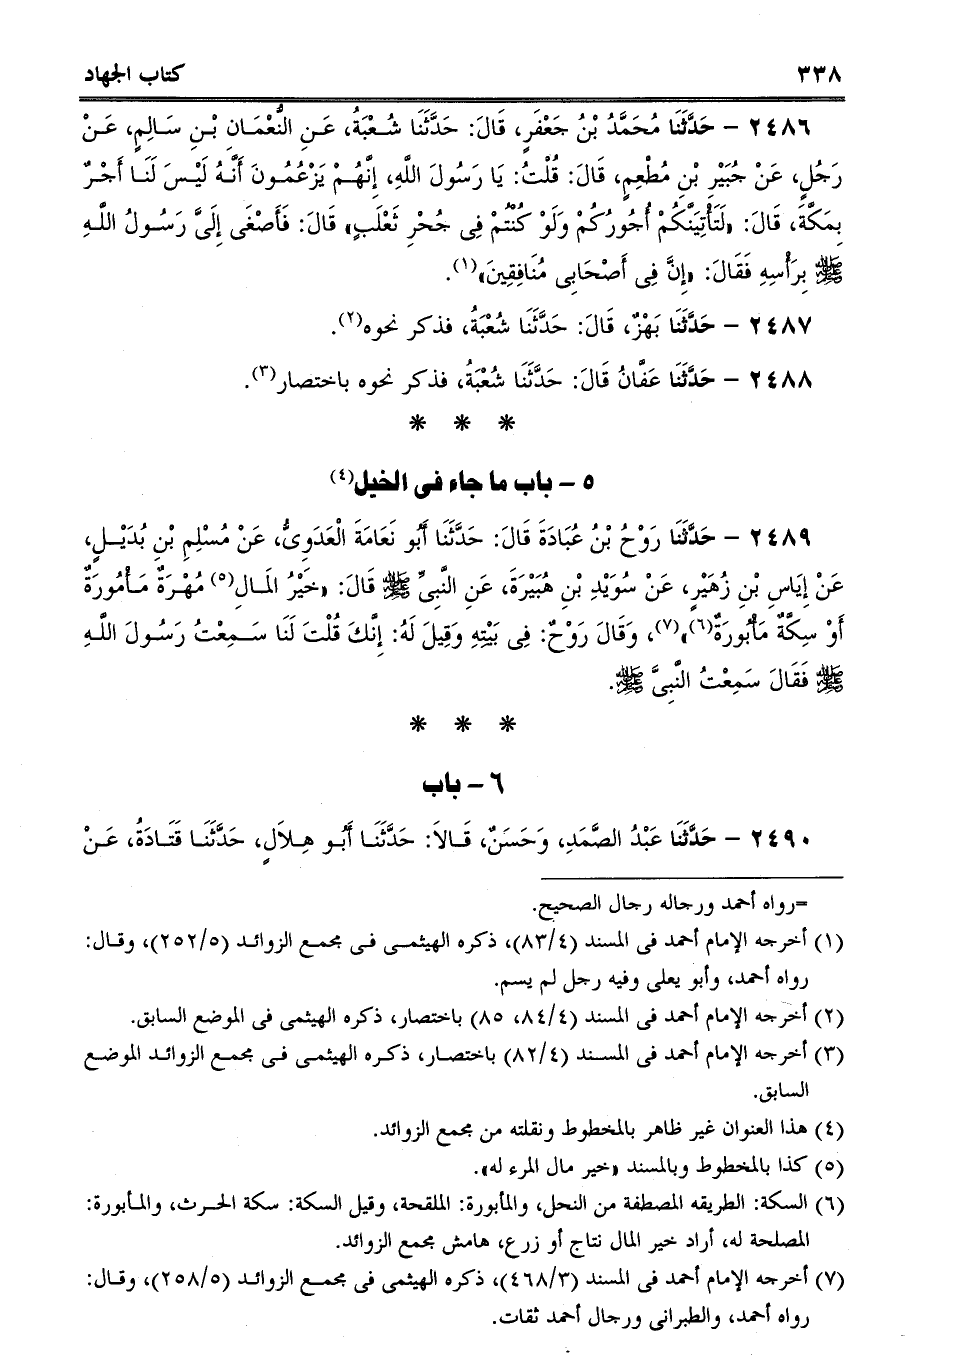 ٣٣٨ كتاب الجهاد
٢٤٨٦ – حَدَّثَنَا مُحَمَّدُ بْنُ جَعْفَرٍ، قَالَ: حَدَّثَنَا شُعْبَةُ، عَنِ النُّعْمَانِ بْنِ سَالِمٍ، عَنْ
رَجُلٍ، عَنْ جُبَيْرِ بْنِ مُطْعِمٍ، قَالَ: قُلْتُ: يَا رَسُولَ اللَّهِ، إِنَّهُمْ يَزْعُمُونَ أَنَّهُ لَيْسَ لَنَا أَجْرٌ
بِمَكَّةَ، قَالَ: «لَتَأْتِيَنَّكُمْ أُجُورُكُمْ وَلَوْ كُنْتُمْ فِى جُحْرِ ثَعْلَبٍ» قَالَ: فَأَصْغَى إِلَىَّ رَسُولُ اللَّهِ
ﷺ بِرَأْسِهِ فَقَالَ: «إِنَّ فِى أَصْحَابِى مُنَافِقِينَ»(١).
٢٤٨٧ – حَدَّثَنَا بَهْزٌ، قَالَ: حَدَّثَنَا شُعْبَةُ، فذكر نحوه(٢).
٢٤٨٨ – حَدَّثَنَا عَفَّانُ قَالَ: حَدَّثَنَا شُعْبَةُ، فذكر نحوه باختصار(٣).
* * *
٥ – باب ما جاء فى الخيل(٤)
٢٤٨٩ – حَدَّثَنَا رَوْحُ بْنُ عُبَادَةَ قَالَ: حَدَّثَنَا أَبُو نَعَامَةَ الْعَدَوِىُّ، عَنْ مُسْلِمِ بْنِ بُدَيْلٍ،
عَنْ إِيَاسِ بْنِ زُهَيْرٍ، عَنْ سُوَيْدِ بْنِ هُبَيْرَةَ، عَنِ النَّبِىِّ ﷺ قَالَ: «خَيْرُ الْمَالِ(٥) مُهْرَةٌ مَأْمُورَةٌ
أَوْ سِكَّةٌ مَأْبُورَةٌ(٦)»(٧)، وَقَالَ رَوْحٌ: فِى بَيْتِهِ وَقِيلَ لَهُ: إِنَّكَ قُلْتَ لَنَا سَمِعْتُ رَسُولَ اللَّهِ
ﷺ فَقَالَ سَمِعْتُ النَّبِىَّ ﷺ.
* * *
٦ – باب
٢٤٩٠ – حَدَّثَنَا عَبْدُ الصَّمَدِ، وَحَسَنٌ، قَالاَ: حَدَّثَنَا أَبُو هِلاَلٍ، حَدَّثَنَا قَتَادَةُ، عَنْ
=رواه أحمد ورجاله رجال الصحيح.
(١) أخرجه الإمام أحمد فى المسند (٨٣/٤)، ذكره الهيثمى فى مجمع الزوائد (٢٥٢/٥)، وقال:
رواه أحمد، وأبو يعلى وفيه رجل لم يسم.
(٢) أخرجه الإمام أحمد فى المسند (٨٤/٤، ٨٥) باختصار، ذكره الهيثمى فى الموضع السابق.
(٣) أخرجه الإمام أحمد فى المسند (٨٢/٤) باختصار، ذكره الهيثمى فى مجمع الزوائد الموضع
السابق.
(٤) هذا العنوان غير ظاهر بالمخطوط ونقلته من مجمع الزوائد.
(٥) كذا بالمخطوط وبالمسند «خير مال المرء له».
(٦) السكة: الطريقه المصطفة من النحل، والمأبورة: الملقحة، وقيل السكة: سكة الحرث، والمأبورة:
المصلحة له، أراد خير المال نتاج أو زرع، هامش مجمع الزوائد.
(٧) أخرجه الإمام أحمد فى المسند (٤٦٨/٣)، ذكره الهيثمى فى مجمع الزوائد (٢٥٨/٥)، وقال:
رواه أحمد، والطبرانى ورجال أحمد ثقات.